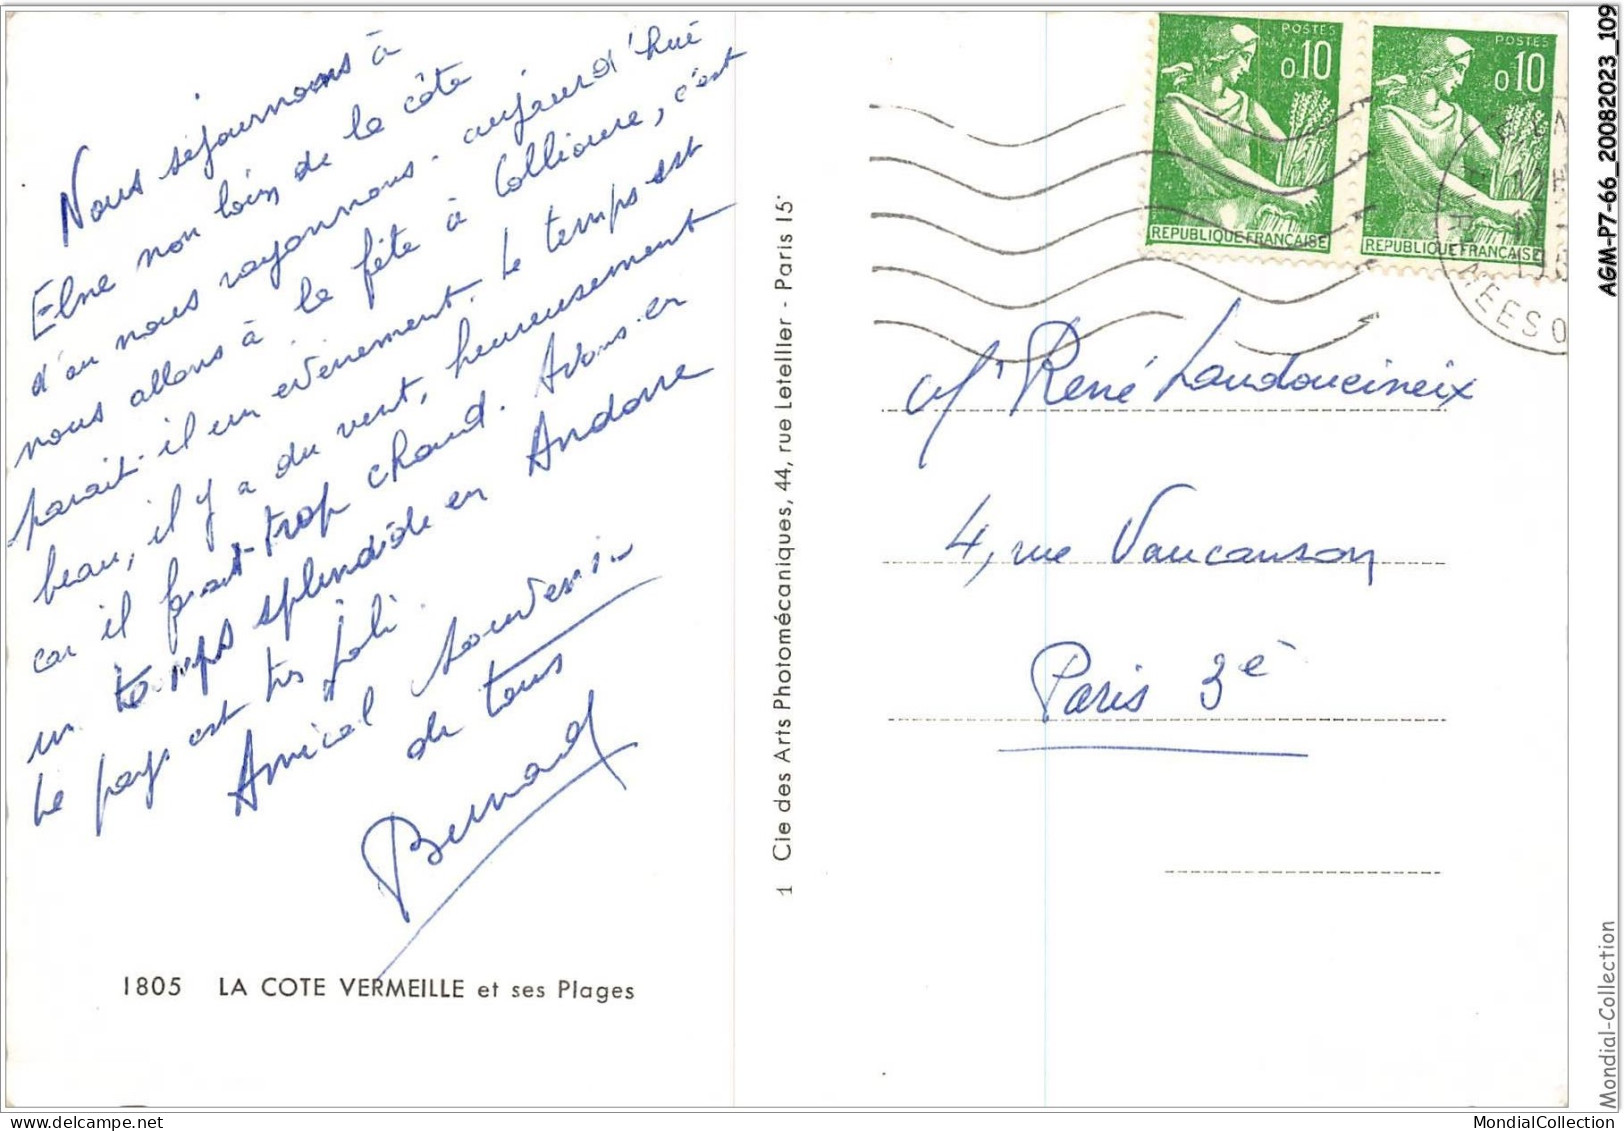 Nous séjournons à
Elne non loin de la côte
d'ou nous rayonnons - aujourd'hui
nous allons à la fête à Collioure, c'est
parait-il un evènement. Le temps est
beau, il y a du vent, heureusement
car il ferait trop chaud. Avons eu
un temps splendide en Andorre
Le pays est très joli.
Amical souvenir
de tous
Bernard
1805 LA COTE VERMEILLE et ses Plages
1 Cie des Arts Photomécaniques, 44, rue Letellier - Paris 15ᵉ
POSTES
0,10
REPUBLIQUE FRANÇAISE
POSTES
0,10
REPUBLIQUE FRANÇAISE
Mr René Laudoueineix
4, rue Vaucanson
Paris 3è
AGM-P7-66_20082023_109
Mondial-Collection
MondialCollection